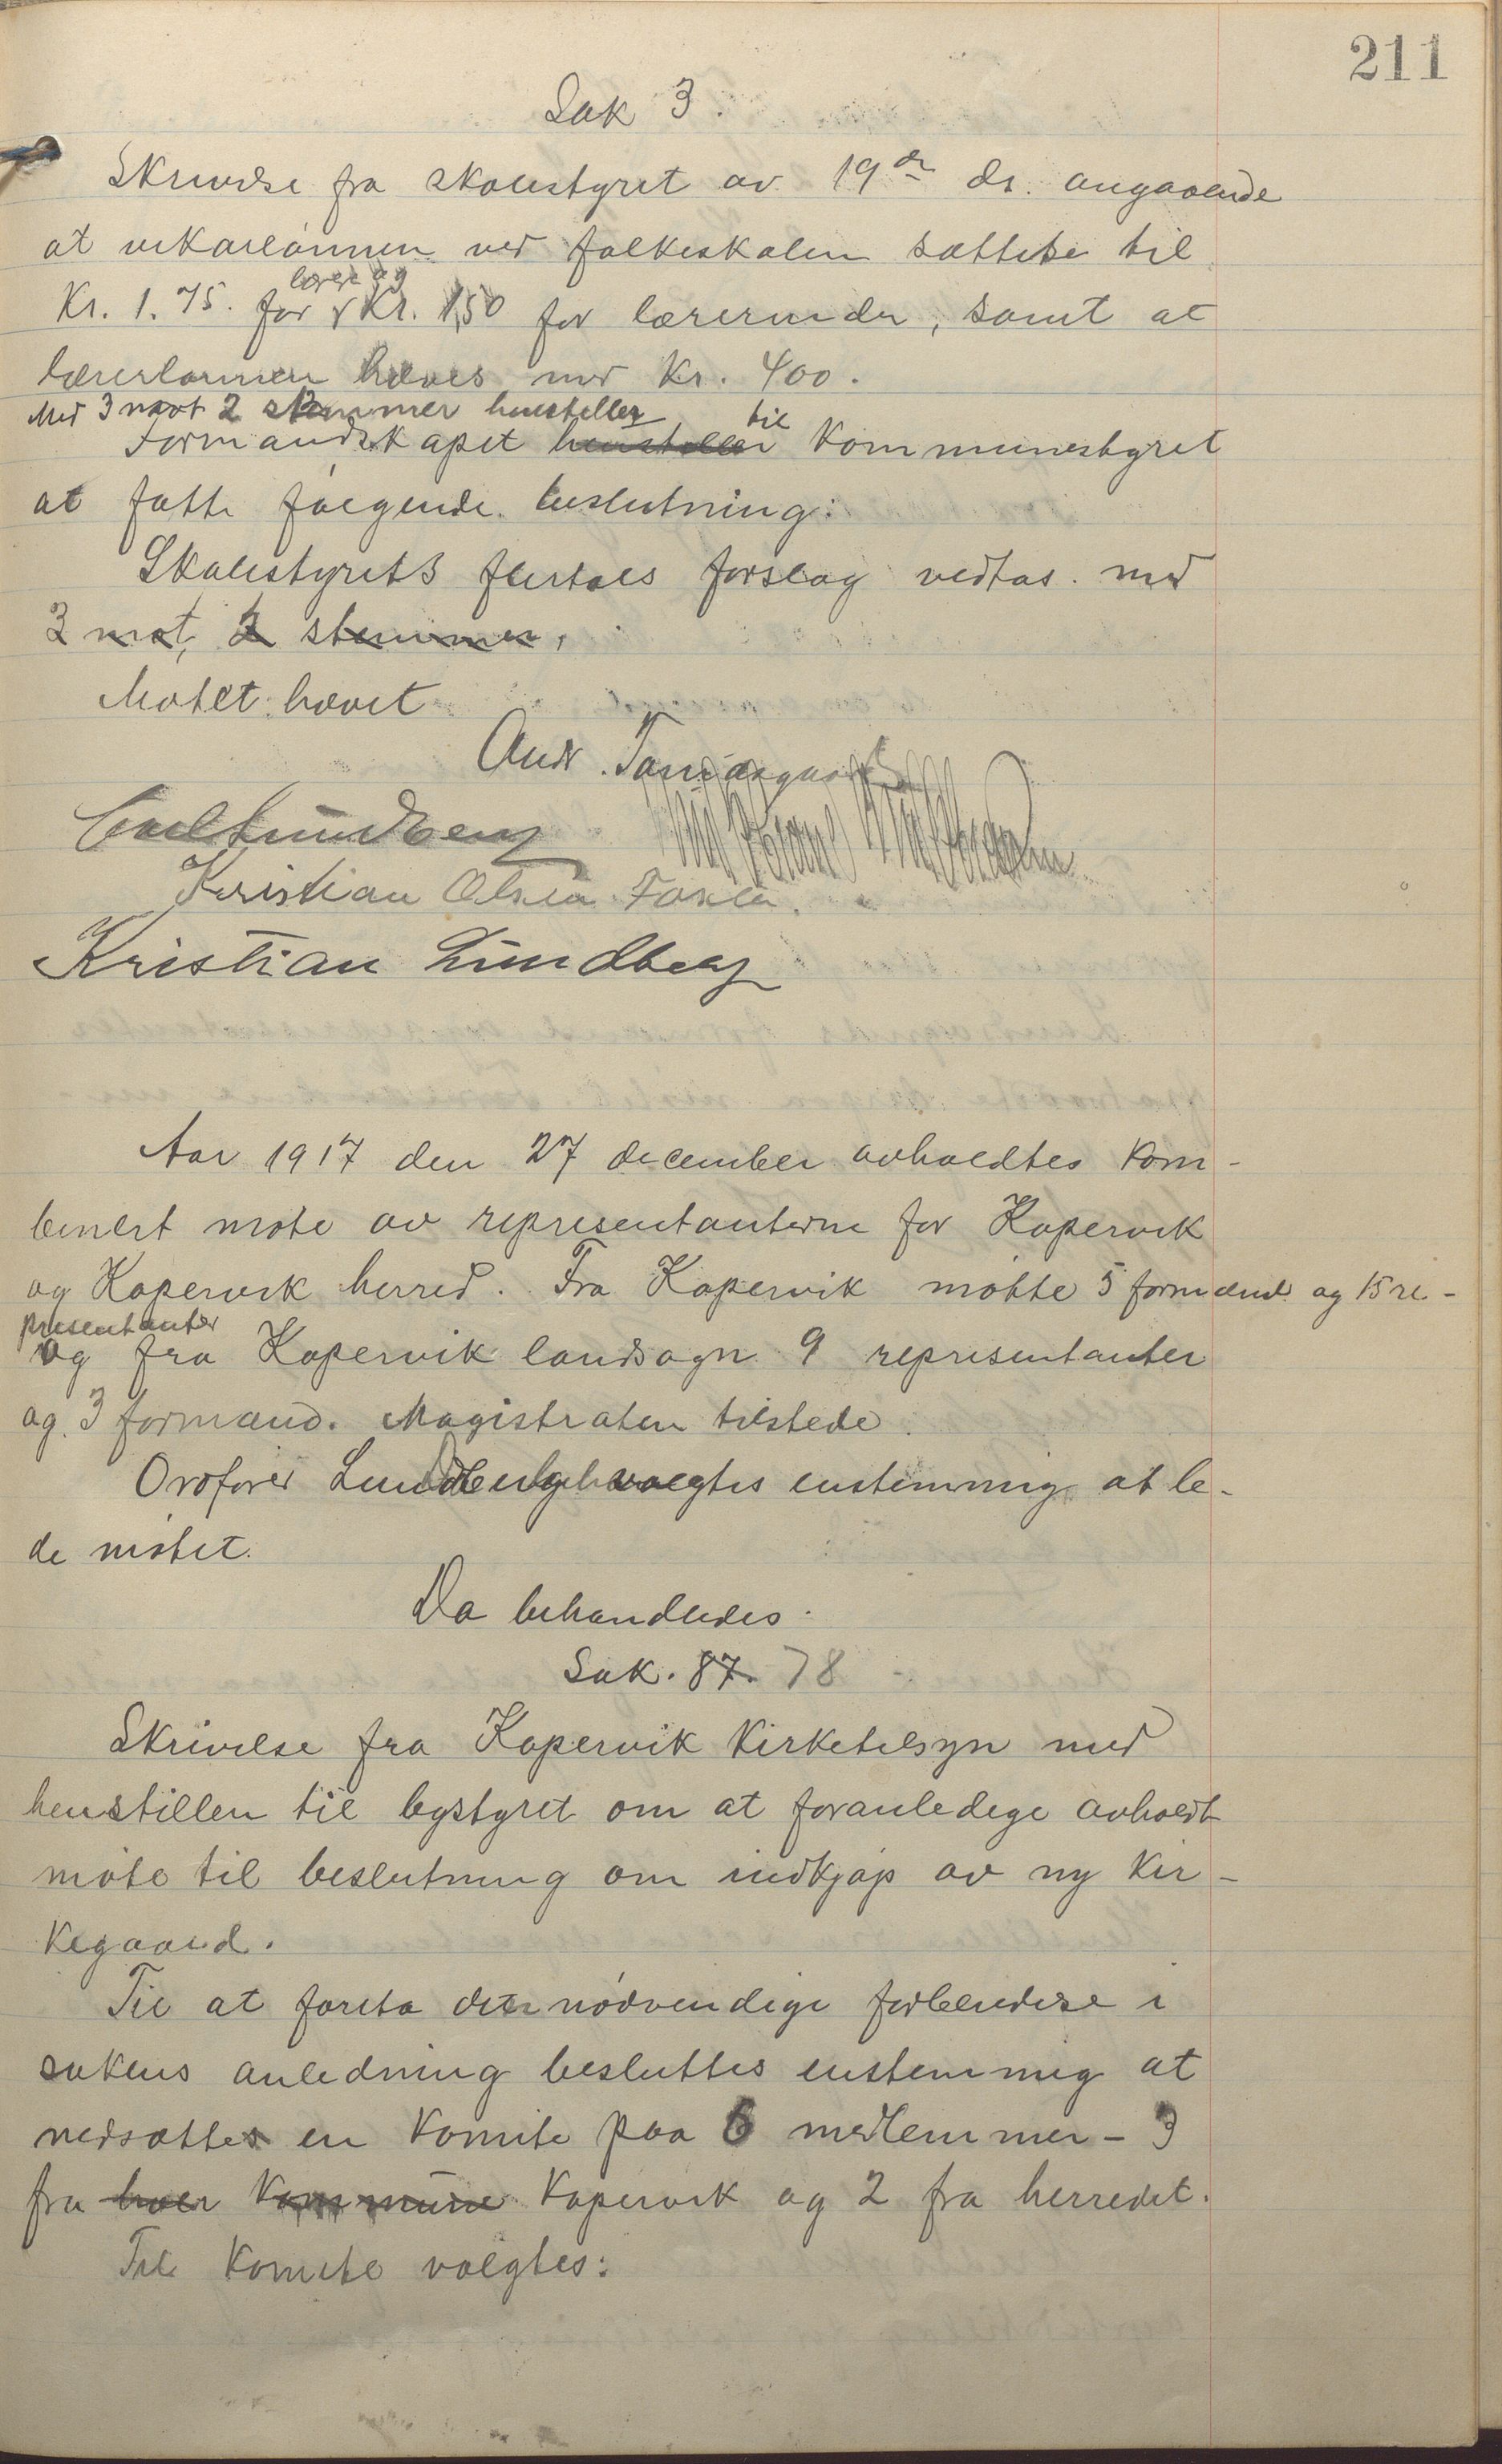 211
Sak 3.
Skrivelse fra skolestyret av 19de ds. angaaende
at vikarlönnen ved folkeskolen sættes til
lærere og
Kr. 1.75. for Kr. 1,50 for lærerinder, samt at
lærerlönnen hæves med Kr. 400.
Med 3 mot 2 stemmer henstiller
Formandskapet henstiller til Kommunestyret
at fatte följende beslutning:
Skolestyrets flertals forslag vedtas. med
3 mot, 2 stemmer.
Mötet hævet
Andr.
Carl Lundberg
Kristian Olsen
Kristian Lundberg
Aar 1917 den 27 december avholdtes kom-
binert möte av representanterne for Kopervik
og Kopervik herred. Fra Kopervik mötte 5 formænd og 15 re-
presentanter
og fra Kopervik landsogn 9 representanter
og 3 formænd. Magistraten tilstede.
Ordförer Lundberg valgtes enstemmig at le-
de mötet.
Da behandledes:
Sak. 87. 78
Skrivelse fra Kopervik Kirketilsyn med
henstillen til bystyret om at foranledige avholdt
möte til beslutning om indkjöp av ny Kir-
kegaard.
Til at foreta den nödvendige forberedelse i
sakens anledning besluttes enstemmig at
nedsættes en Komite paa 6 medlemmer - 3
fra hver Kommune Kopervik og 2 fra herredet.
Til Komite valgtes: